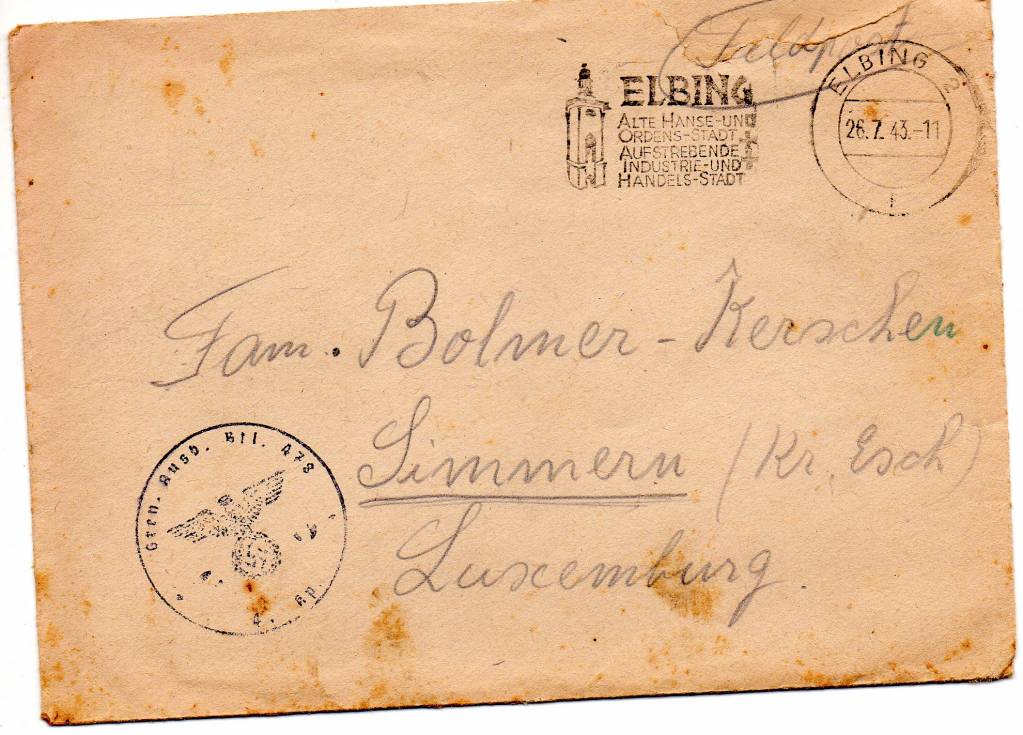 Feldpost
ELBING
ALTE HANSE-UND
ORDENS-STADT
AUFSTREBENDE
INDUSTRIE-UND
HANDELS-STADT
ELBING 2
26.7.43.-11
Fam. Bolmer-Kerschen
Simmern (Kr. Esch)
Luxemburg.
Gren. Ausb. Btl. 473
4. Kp.